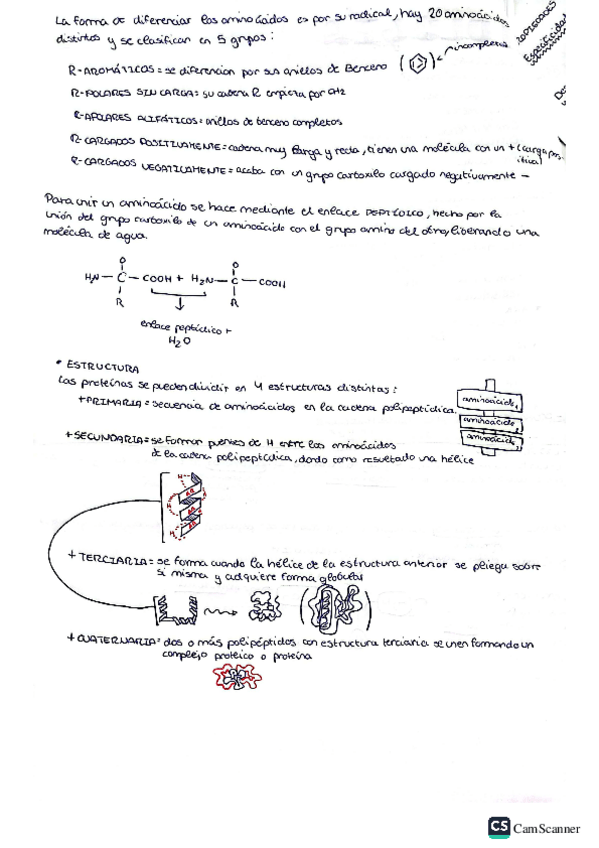 La forma de diferenciar los aminoácidos es por su radical, hay 20 aminoácidos
distintos y se clasifican en 5 grupos:
R-AROMÁTICOS = se diferencian por sus anillos de Benceno ( ) incompletos
R-POLARES SIN CARGA = su cadena R empieza por CH2
R-APOLARES ALIFÁTICOS = anillos de benceno completos
R-CARGADOS POSITIVAMENTE = cadena muy larga y recta, tienen una molécula con un + (carga pos
itiva)
R-CARGADOS NEGATIVAMENTE = acaba con un grupo carboxilo cargado negativamente -
Especificidad
Para unir un aminoácido se hace mediante el enlace PEPTÍDICO, hecho por la
unión del grupo carboxilo de un aminoácido con el grupo amino del otro, liberando una
molécula de agua.
O O
H2N - C - COOH + H2N - C - COOH
R R
enlace peptídico +
H2O
* ESTRUCTURA
Las proteínas se pueden dividir en 4 estructuras distintas:
+ PRIMARIA = secuencia de aminoácidos en la cadena polipeptídica.
aminoácido1
aminoácido2
aminoácido3
+ SECUNDARIA = se forman puentes de H entre los aminoácidos
de la cadena polipeptídica, dando como resultado una hélice
+ TERCIARIA = se forma cuando la hélice de la estructura anterior se pliega sobre
si misma y adquiere forma globular
+ CUATERNARIA = dos o más polipéptidos con estructura terciaria se unen formando un
complejo proteico o proteína
CS CamScanner